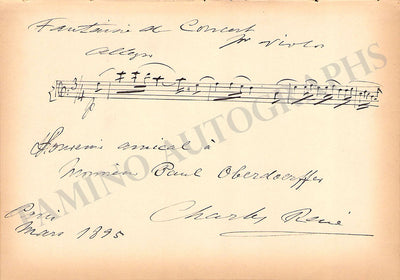 Fantaisie de Concert
pr violon
Allegro
Souvenir amical à
Monsieur Paul Oberdoerffer
Paris
Mars 1895
Charles René
TAMINO AUTOGRAPHS